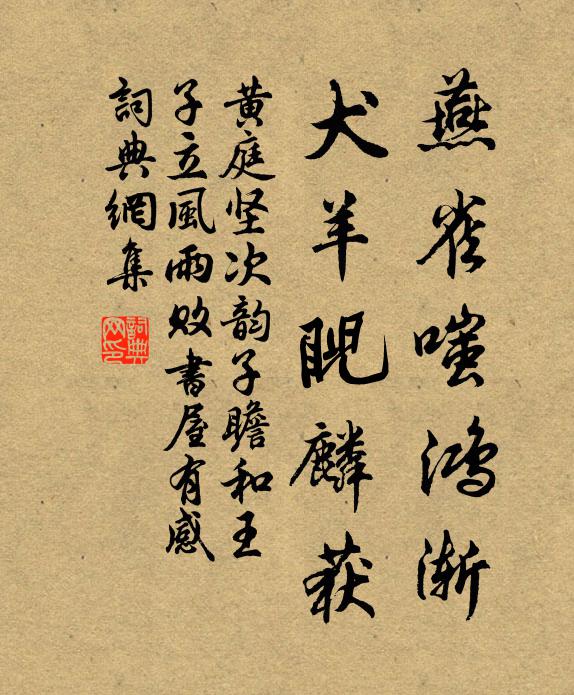 燕雀嗤鸿渐
犬羊睨麟获
黄庭坚次韵子瞻和王
子立風雨败書屋有感
詞典網集
詞典网印